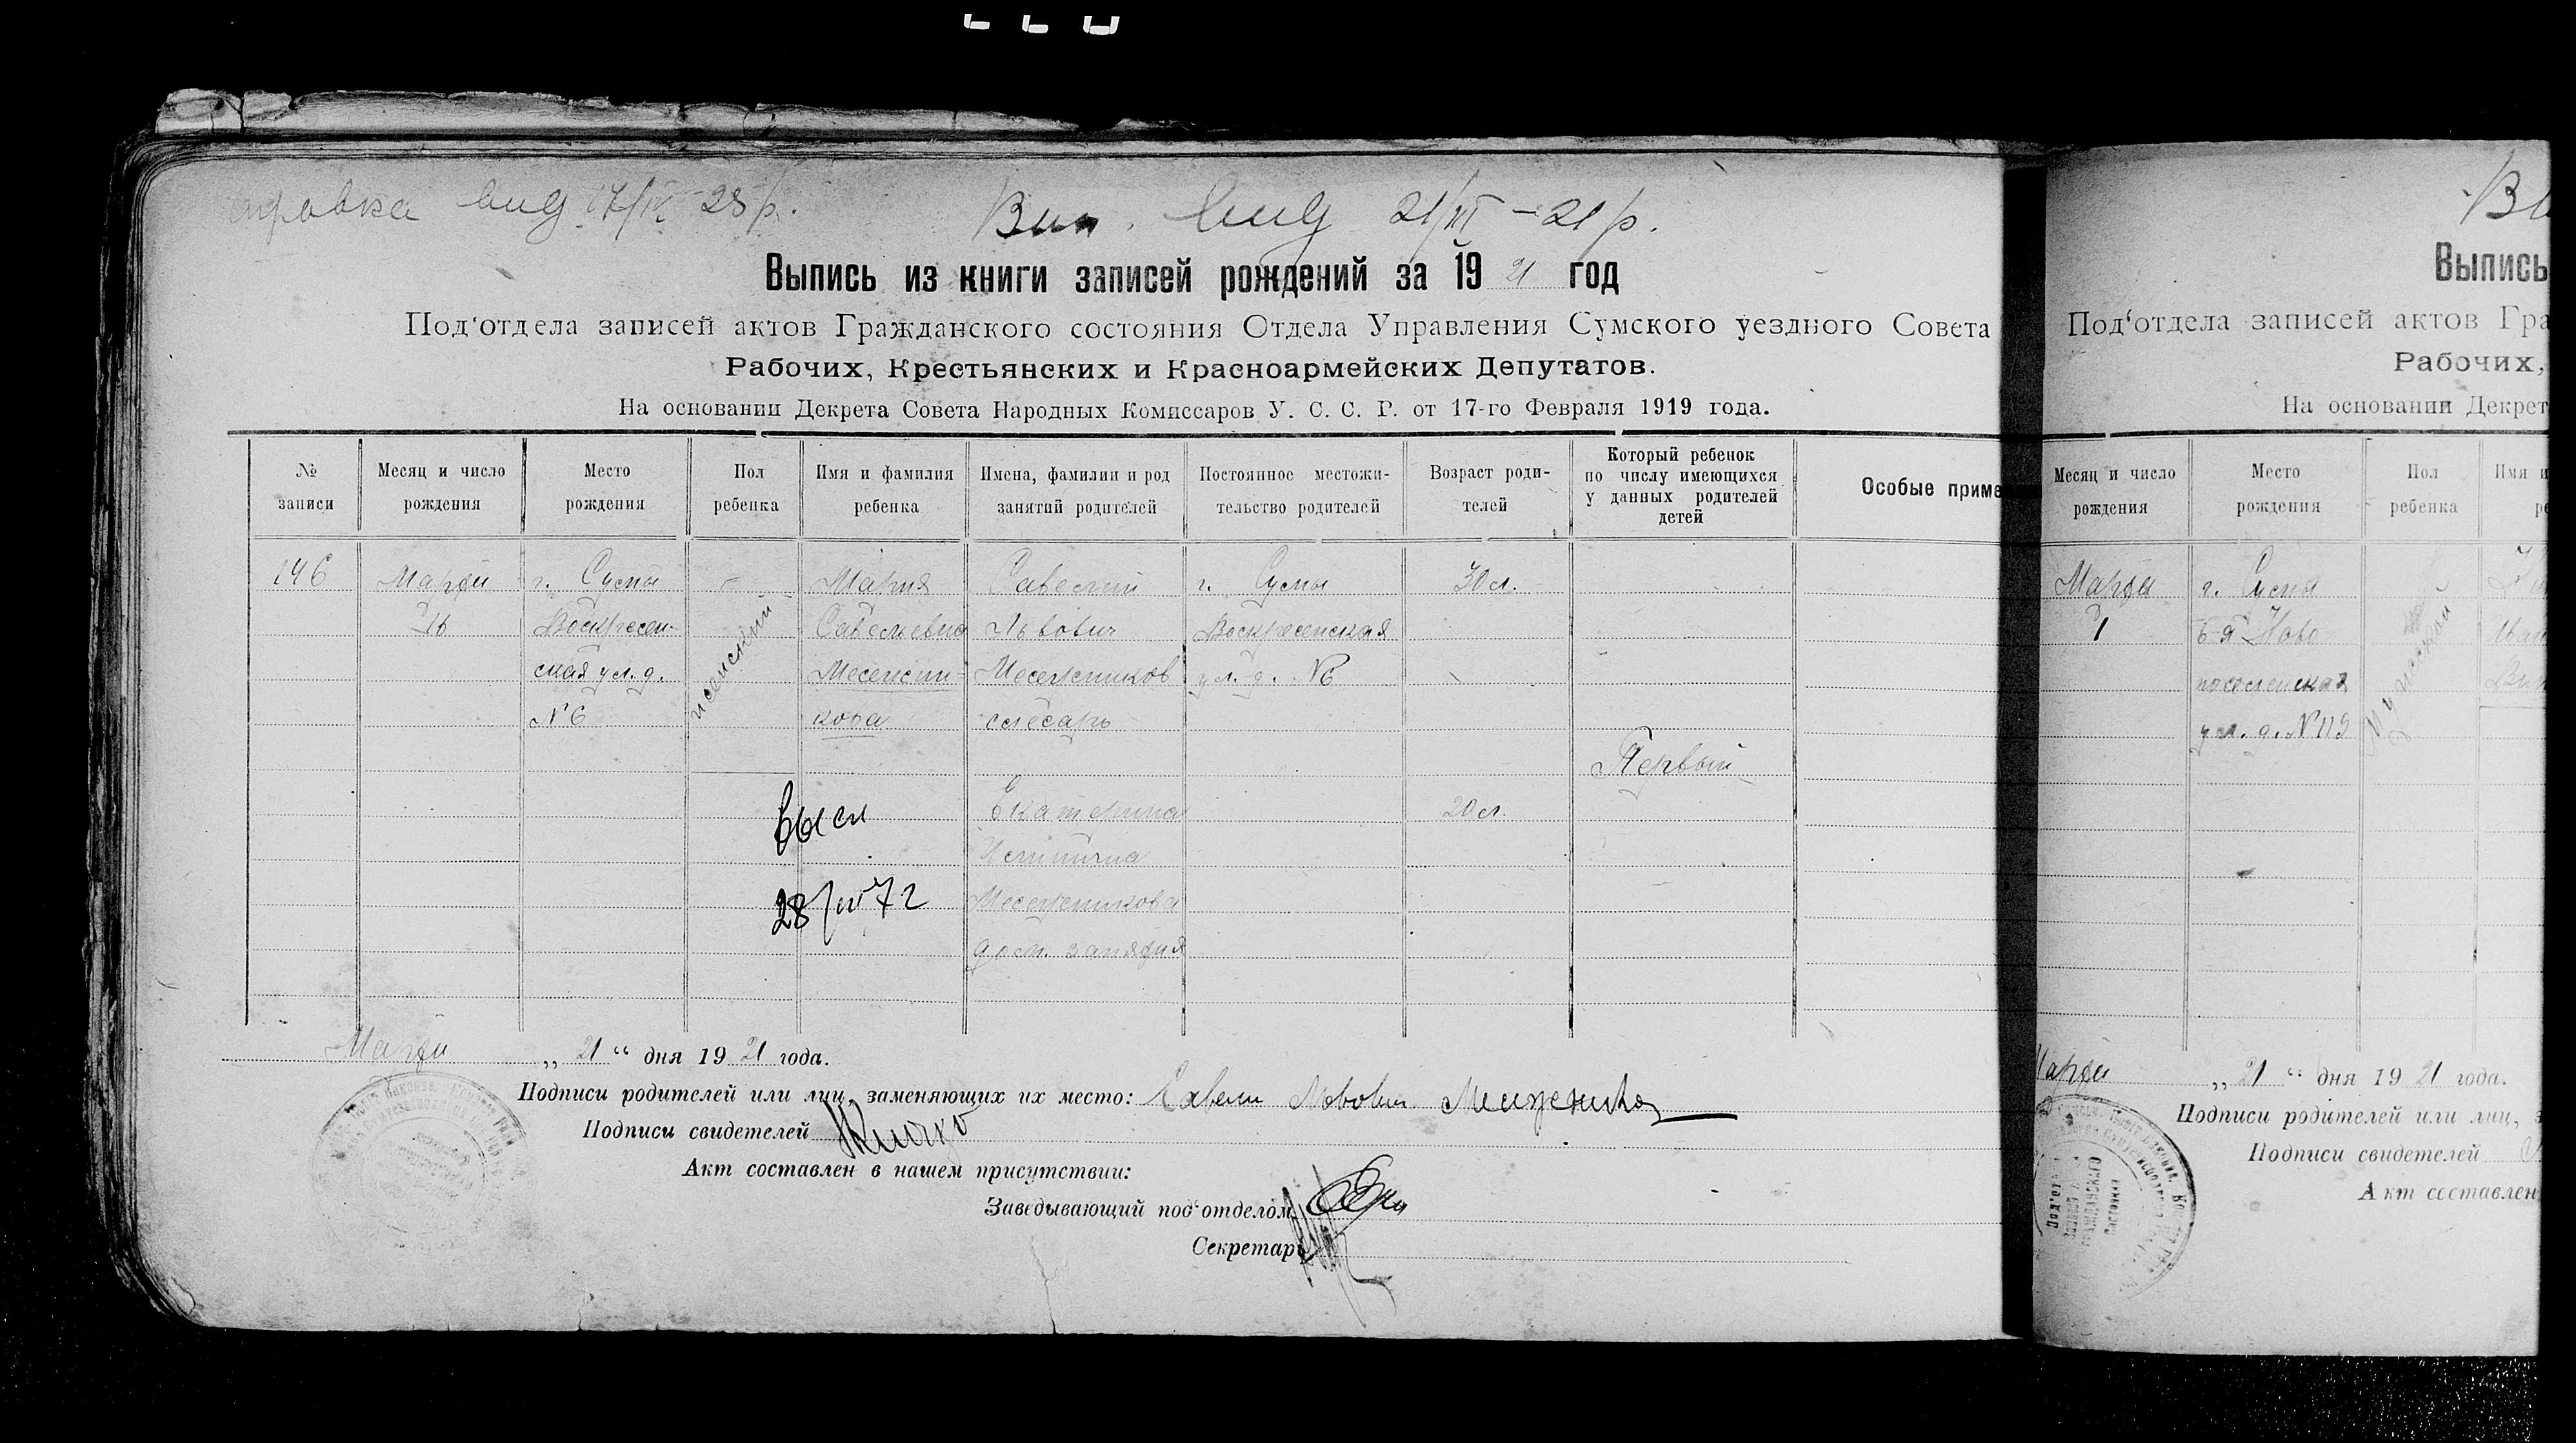 Вип. вид 21/III – 21 р.
Выпись из книги записей рождений за 1921 год
Под‘отдела записей актов Гражданского состояния Отдела Управления Сумского уездного Совета
Рабочих, Крестьянских и Красноармейских Депутатов.
На основании Декрета Совета Народных Комиссаров У. С. С. Р. от 17-го Февраля 1919 года.
№ записи
Месяц и число рождения
Место рождения
Пол ребенка
Имя и фамилия ребенка
Имена, фамилии и род занятий родителей
Постоянное местожительство родителей
Возраст родителей
Который ребенок по числу имеющихся у данных родителей детей
Особые приме
146
Марта
16
г. Сумы
Воскресен-
ская ул. д.
№ 6
женский
Мария
Савельевна
кова
Савелий
Львович
слесарь
Екатерина
дом. занятия
г. Сумы
Воскресенская
ул. д. №6
30 л.
20 л.
Первый
28/IV 72
Марта „ 21 “ дня 1921 года.
Подписи родителей или лиц, заменяющих их место:
Подписи свидетелей
Акт составлен в нашем присутствии:
Заведывающий под‘отделом
Секретарь
Выпись
Под‘отдела записей актов Гра
Рабочих,
На основании Декрет
Месяц и число рождения
Место рождения
Пол ребенка
Имя и
Марта
1
г. Сумы
ул. д. №113
мужской
Марта „ 21 “ дня 1921 года.
Подписи родителей или лиц, з
Подписи свидетелей
Акт составлен